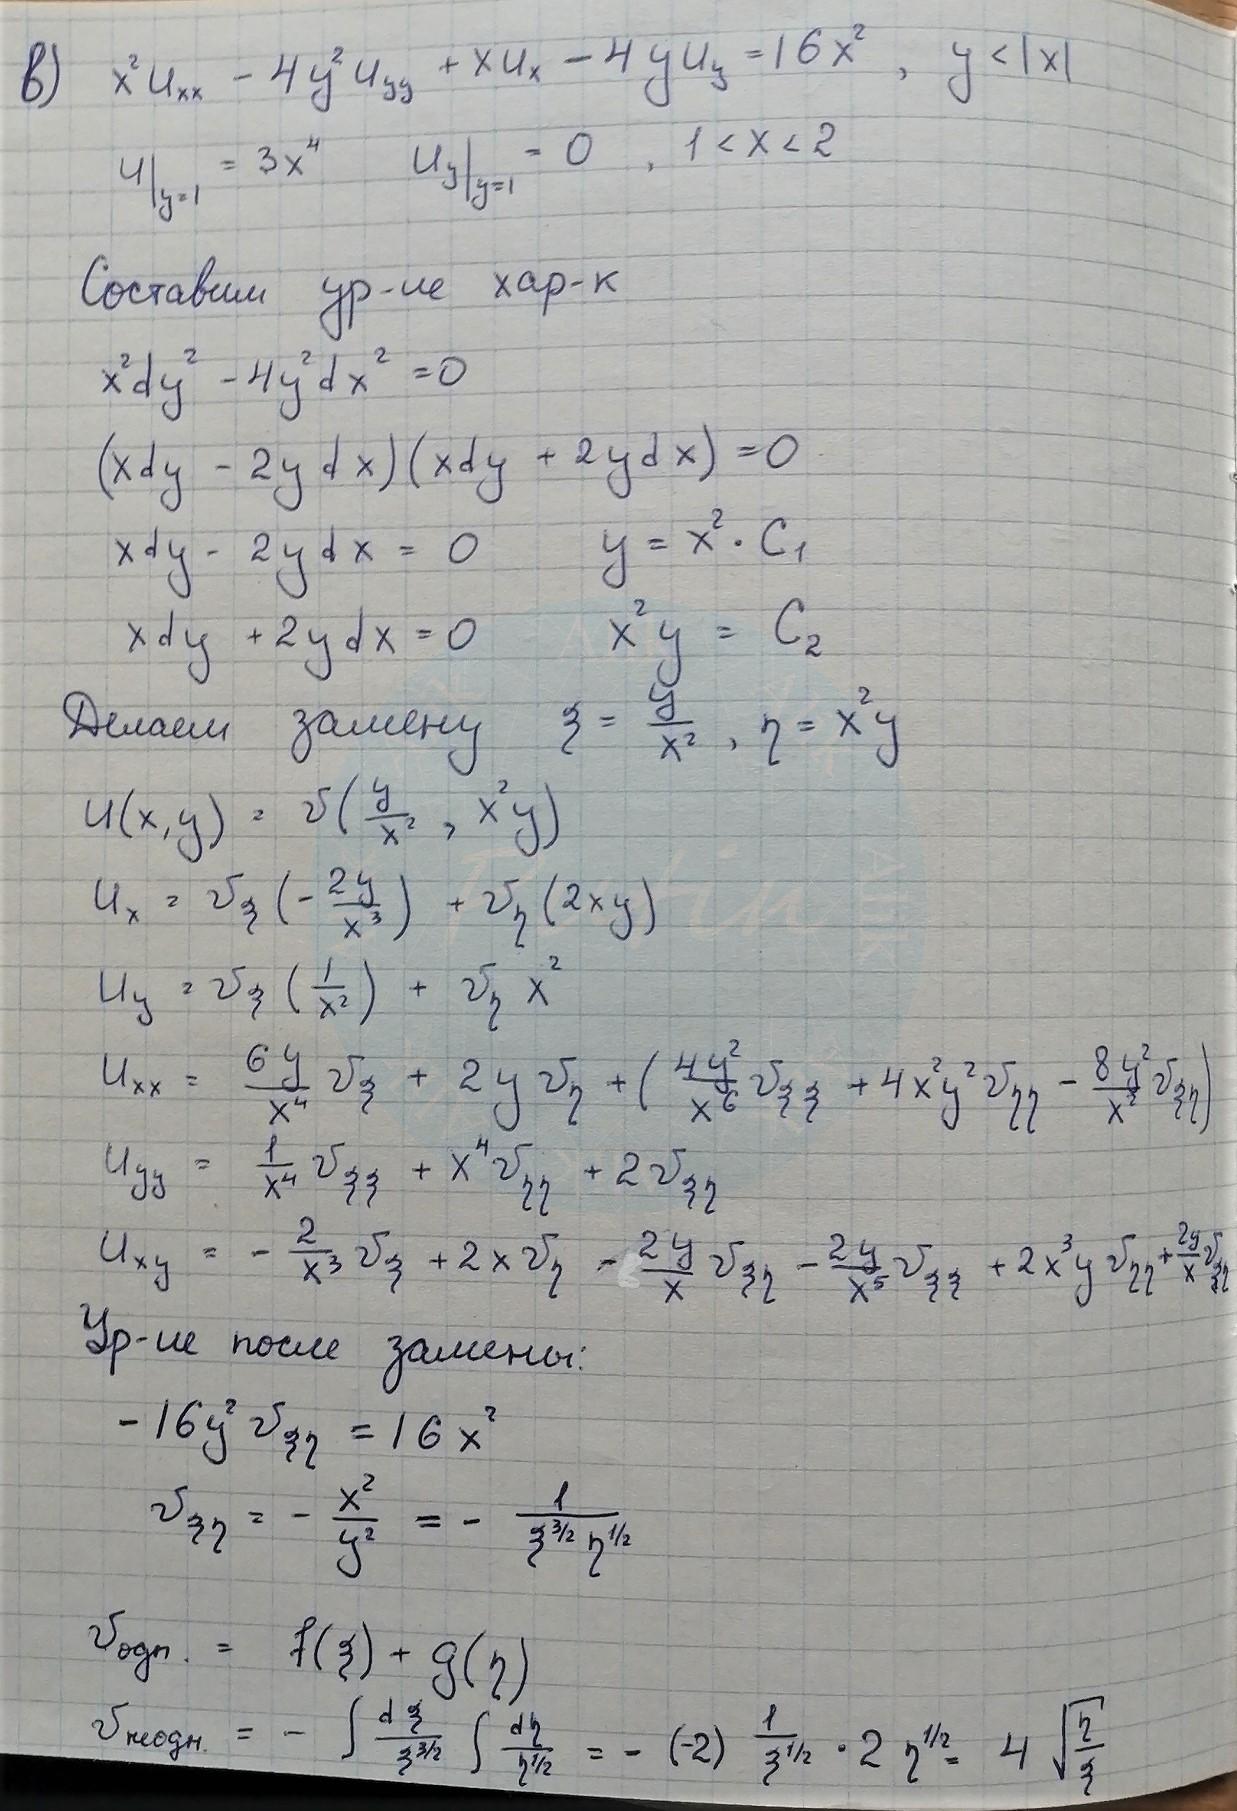 в) x² Uxx - 4y² Uyy + x Ux - 4y Uy = 16x², y < |x|
U|y=1 = 3x⁴ Uy|y=1 = 0, 1 < x < 2
Составим ур-ие хар-к
x²dy² - 4y²dx² = 0
(xdy - 2ydx)(xdy + 2ydx) = 0
xdy - 2ydx = 0 y = x² · C₁
xdy + 2ydx = 0 x²y = C₂
Делаем замену ξ = y/x², η = x²y
U(x,y) = v(y/x², x²y)
Ux = vξ(-2y/x³) + vη(2xy)
Uy = vξ(1/x²) + vη x²
Uxx = 6y/x⁴ vξ + 2y vη + (4y²/x⁶ vξξ + 4x²y² vηη - 8y²/x² vξη)
Uyy = 1/x⁴ vξξ + x⁴ vηη + 2vξη
Uxy = -2/x³ vξ + 2x vη - 2y/x vξη - 2y/x⁵ vξξ + 2x³y vηη + 2y/x vξη
Ур-ие после замены:
-16y² vξη = 16x²
vξη = - x²/y² = - 1/(ξ^3/2 η^1/2)
vодн. = f(ξ) + g(η)
vнеодн. = - ∫ dξ/ξ^3/2 ∫ dη/η^1/2 = - (-2) 1/ξ^1/2 · 2 η^1/2 = 4 √(η/ξ)